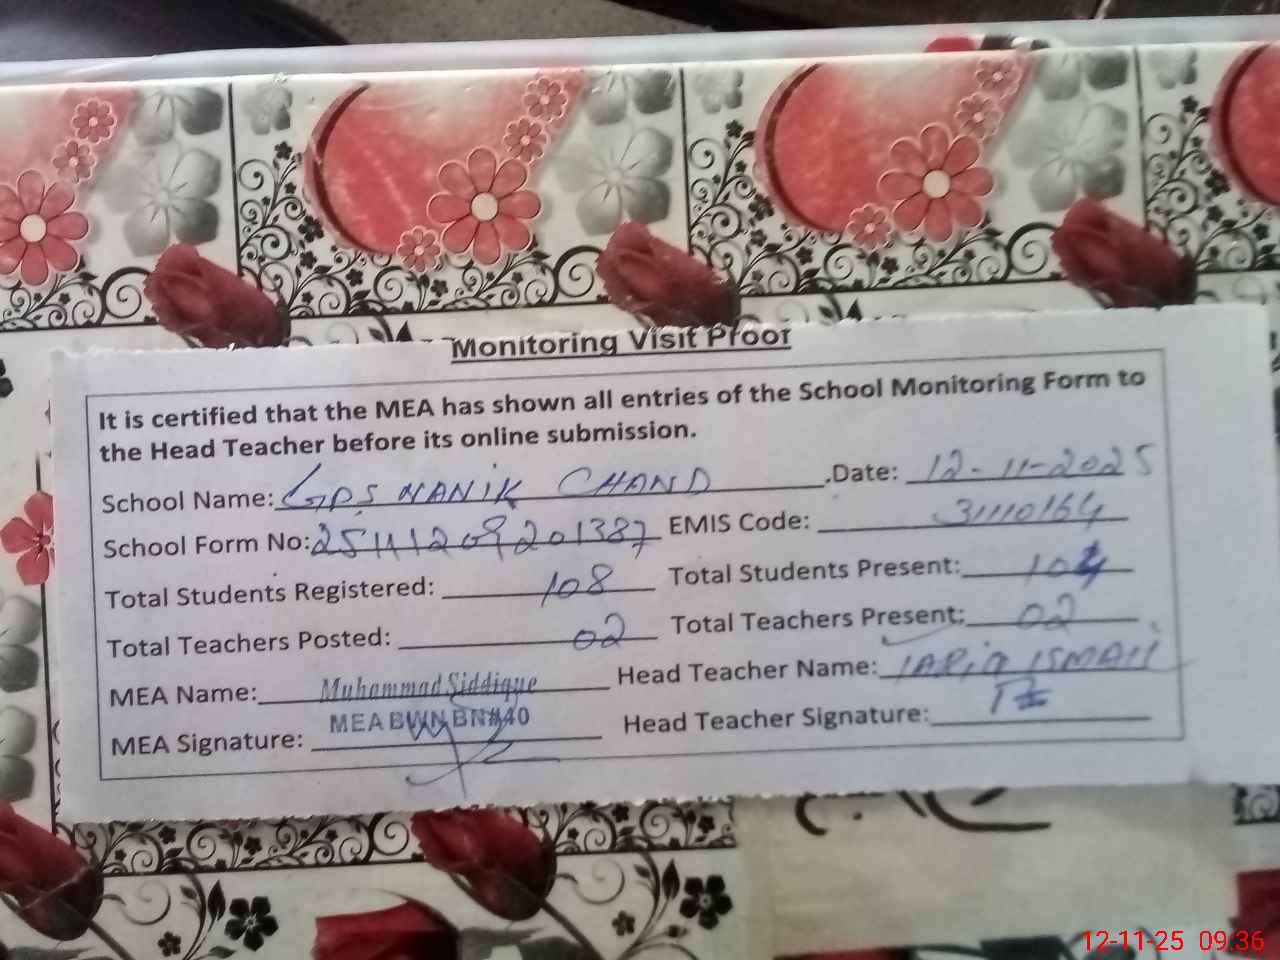 Monitoring Visit Proof
It is certified that the MEA has shown all entries of the School Monitoring Form to
the Head Teacher before its online submission.
School Name: GPS NANIK CHAND .Date: 12-11-2025
School Form No: 25111209201387 EMIS Code: 31110164
Total Students Registered: 108 Total Students Present: 104
Total Teachers Posted: 02 Total Teachers Present: 02
MEA Name: Muhammad Siddique Head Teacher Name: TARIQ ISMAIL
MEA BWN BN#40
MEA Signature: Head Teacher Signature:
12-11-25 09:36